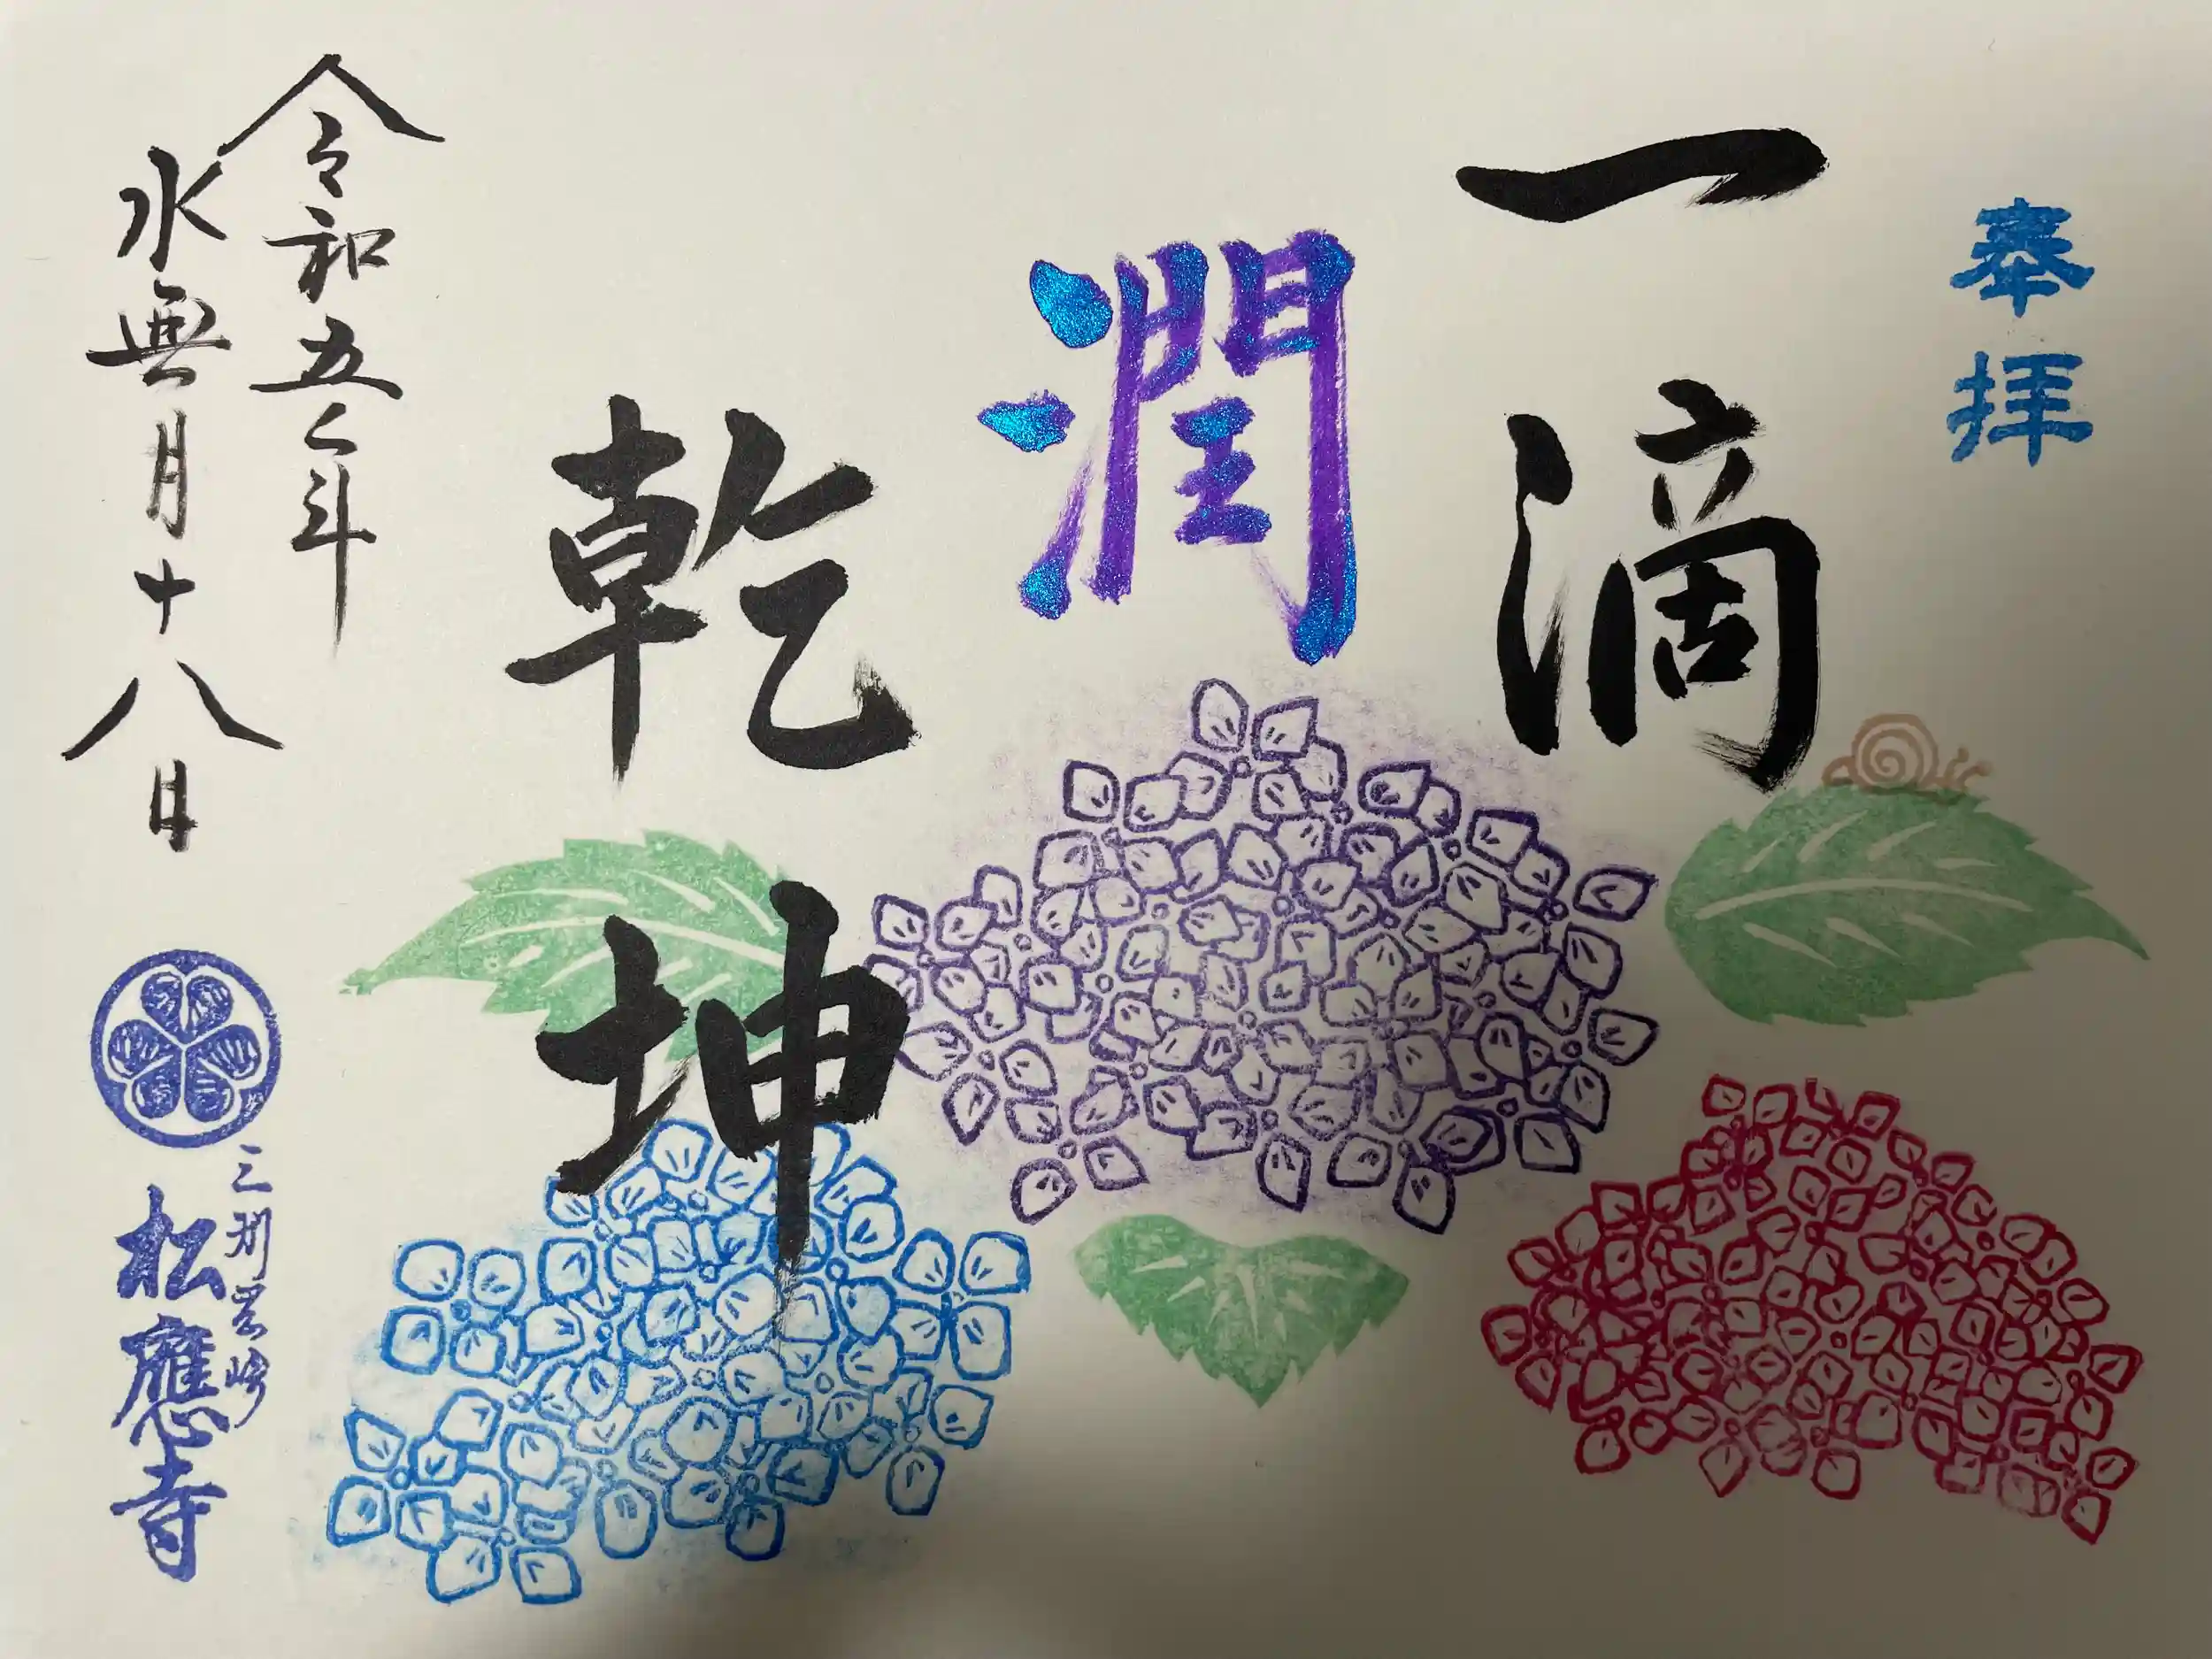 奉拝
一滴
潤
乾坤
令和五年
水無月十八日
三州岡崎
松應寺